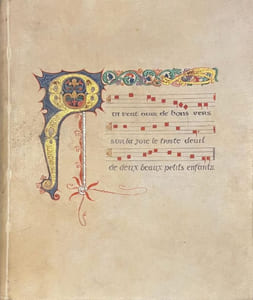 Qui veut ouir de bons vers
sur la joie le triste deuil
de deux beaux petits enfants